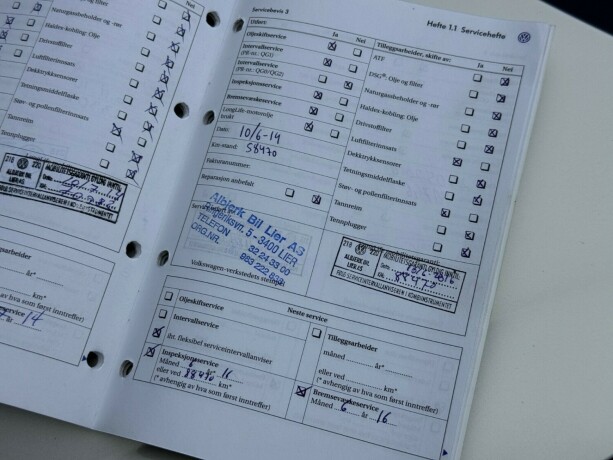 Servicebevis 3
Hefte 1.1 Servicehefte
Utført:
Ja
Nei
Oljeskiftservice
Intervallservice
(PR-nr.: QG1)
Intervallservice
(PR-nr.: QG0/QG2)
Inspeksjonsservice
Bremsevæskeservice
LongLife-motorolje
brukt
Dato: 10/6-14
Km-stand: 58470
Fakturanummer:
Reparasjon anbefalt
Albjerk Bil Lier AS
Ringeriksvn. 5 - 3400 LIER
TELEFON 32 24 33 00
ORG.NR.
Volkswagen-verkstedets stempel
Tilleggsarbeider, skifte av:
Ja
Nei
ATF
DSG®: Olje og filter
Naturgassbeholder og -rør
Haldex-kobling: Olje
Drivstoffilter
Luftfilterinnsats
Dekktrykksensorer
Tetningsmiddelflaske
Støv- og pollenfilterinnsats
Tannreim
Tennplugger
ALBJERK BIL
LIER AS
Neste service
Oljeskiftservice
Intervallservice
iht. fleksibel serviceintervallanviser
Inspeksjonsservice
Måned 6 år 16
eller ved 88470 km*
(* avhengig av hva som først inntreffer)
Tilleggsarbeider
måned år*
eller ved km*
(* avhengig av hva som først inntreffer)
Bremsevæskeservice
Måned 6 år 16
Naturgassbeholder og -rør
Haldex-kobling: Olje
Drivstoffilter
Luftfilterinnsats
Dekktrykksensorer
Tetningsmiddelflaske
Støv- og pollenfilterinnsats
Tannreim
Tennplugger
ALBJERK BIL
LIER AS
år*
km*
av hva som først inntreffer)
service
år 14